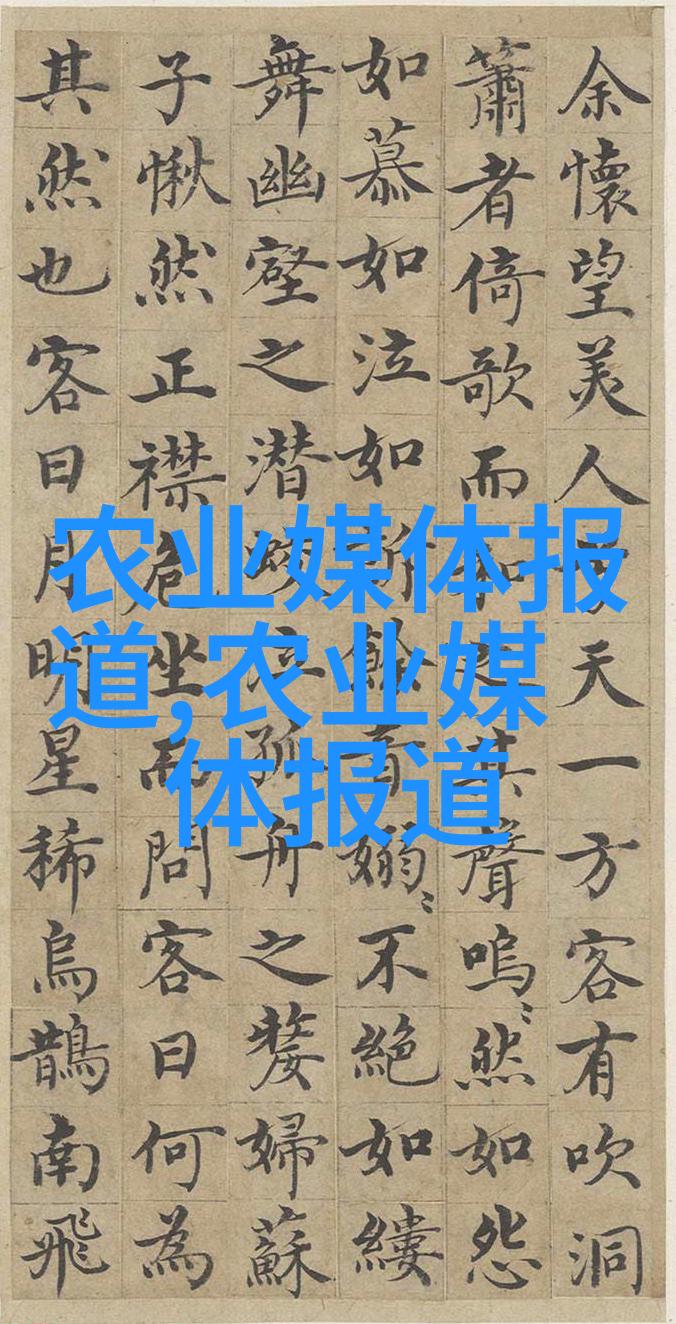 余懷望美人兮天一方客有吹洞
簫者倚歌而和之其聲嗚〻然如怨
如慕如泣如訴餘音嫋〻不絕如縷
舞幽壑之潛蛟泣孤舟之嫠婦蘇
子愀然正襟危坐而問客曰何為
其然也客曰月明星稀烏鵲南飛
农业媒体报
道,农业媒
体报道